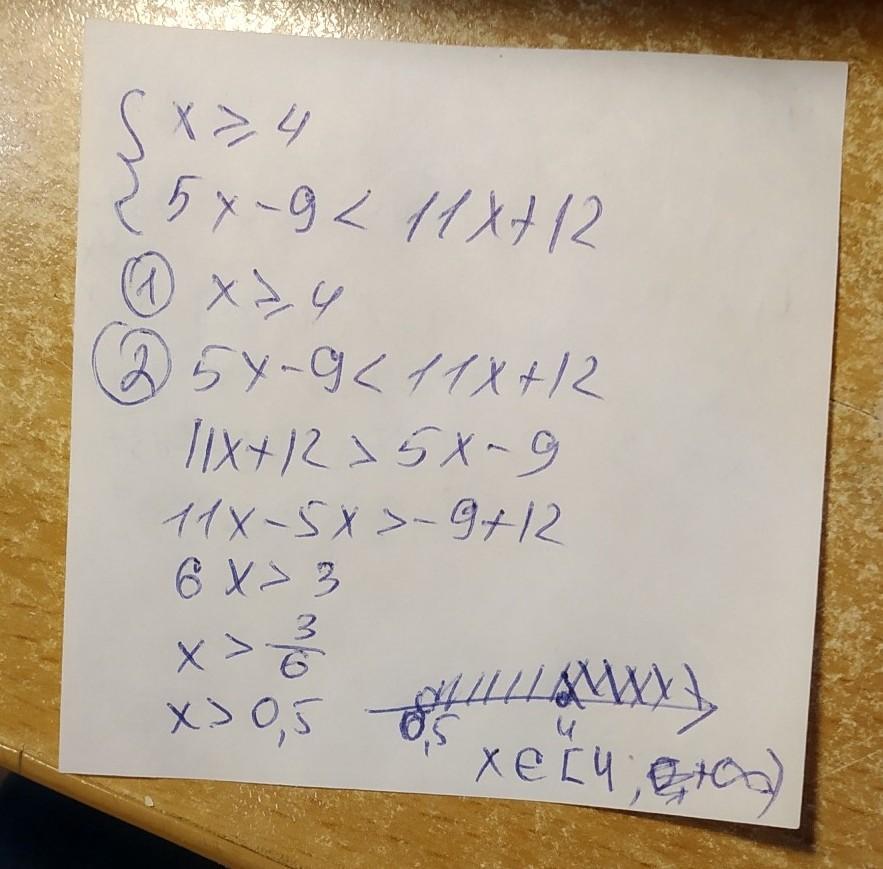 { x ≥ 4
5x - 9 < 11x + 12
① x ≥ 4
② 5x - 9 < 11x + 12
11x + 12 > 5x - 9
11x - 5x > - 9 + 12
6x > 3
x > 3/6
x > 0,5
0,5 4
x ∈ [4 ; +∞)